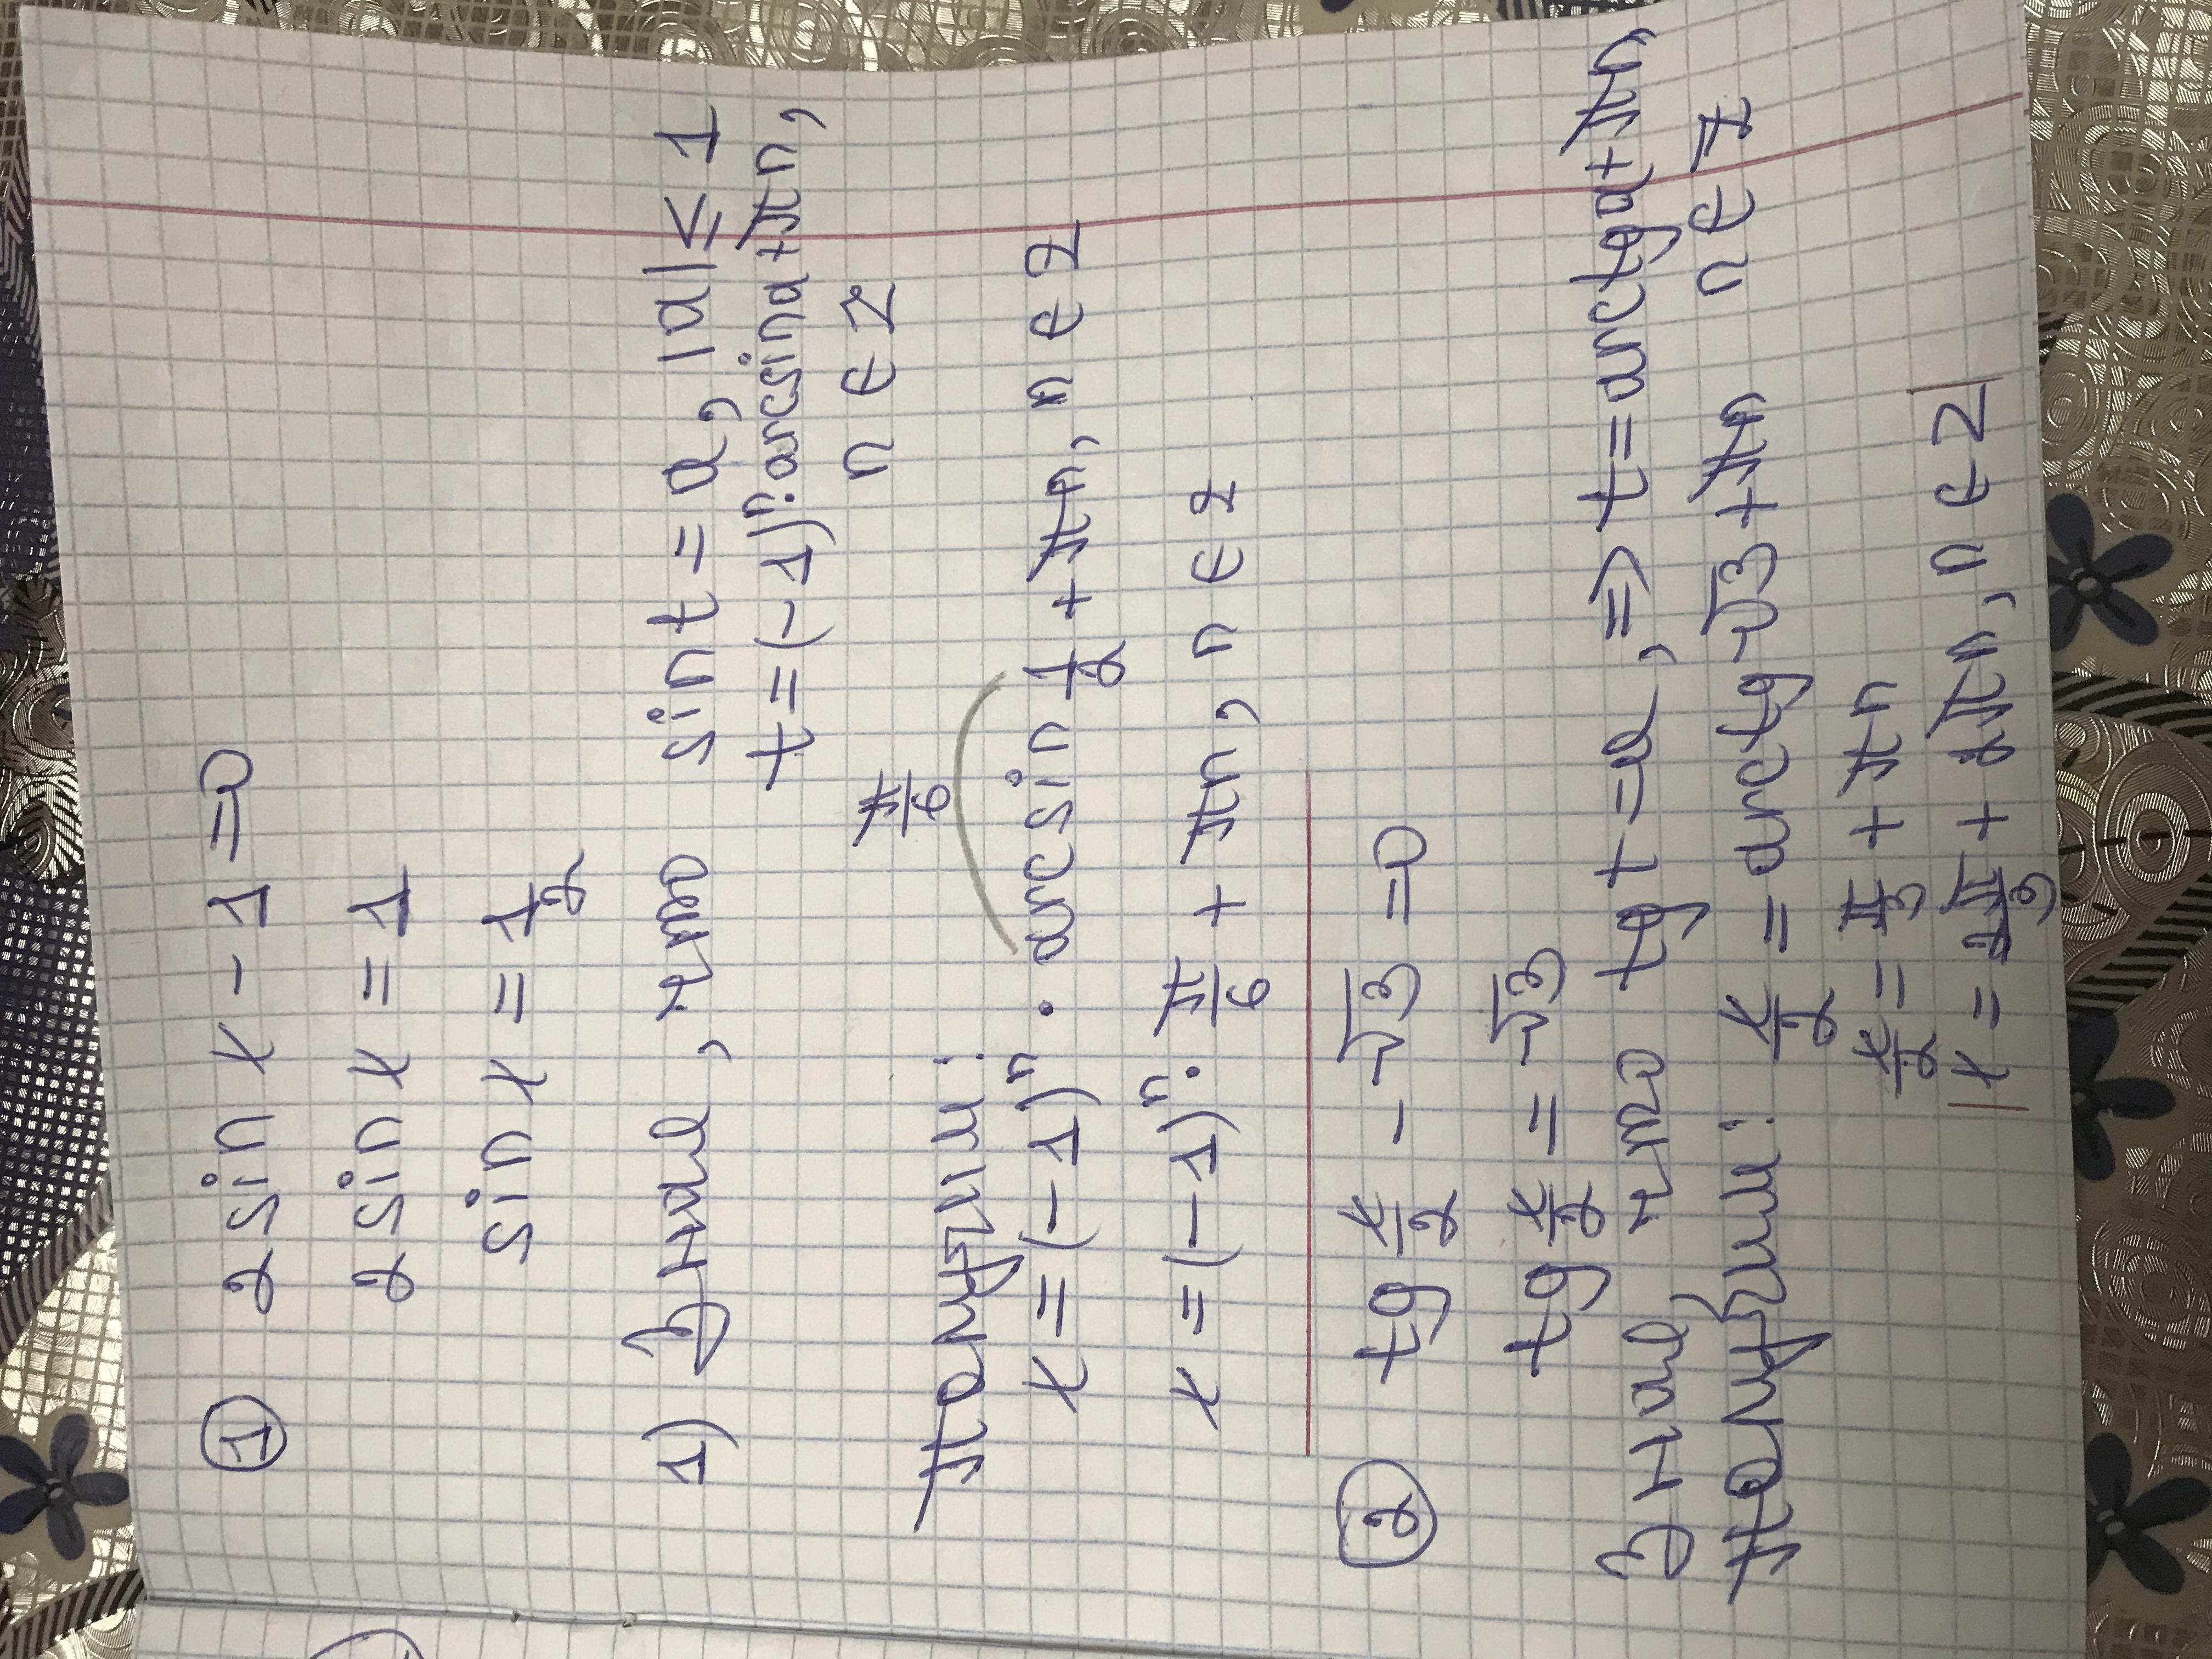 ① 2 sin x - 1 = 0
2 sin x = 1
sin x = 1/2
1) Знаю, что sin t = a, |a| ≤ 1
t = (-1)ⁿ · arcsin a + πn,
n ∈ Z
π/6
Получим:
x = (-1)ⁿ · arcsin 1/2 + πn, n ∈ Z
x = (-1)ⁿ · π/6 + πn, n ∈ Z
② tg x/2 - √3 = 0
tg x/2 = √3
Знаю, что tg t = a, => t = arctg a + πn
n ∈ Z
Получим: x/2 = arctg √3 + πn
x/2 = π/3 + πn
x = 2π/3 + 2πn, n ∈ Z